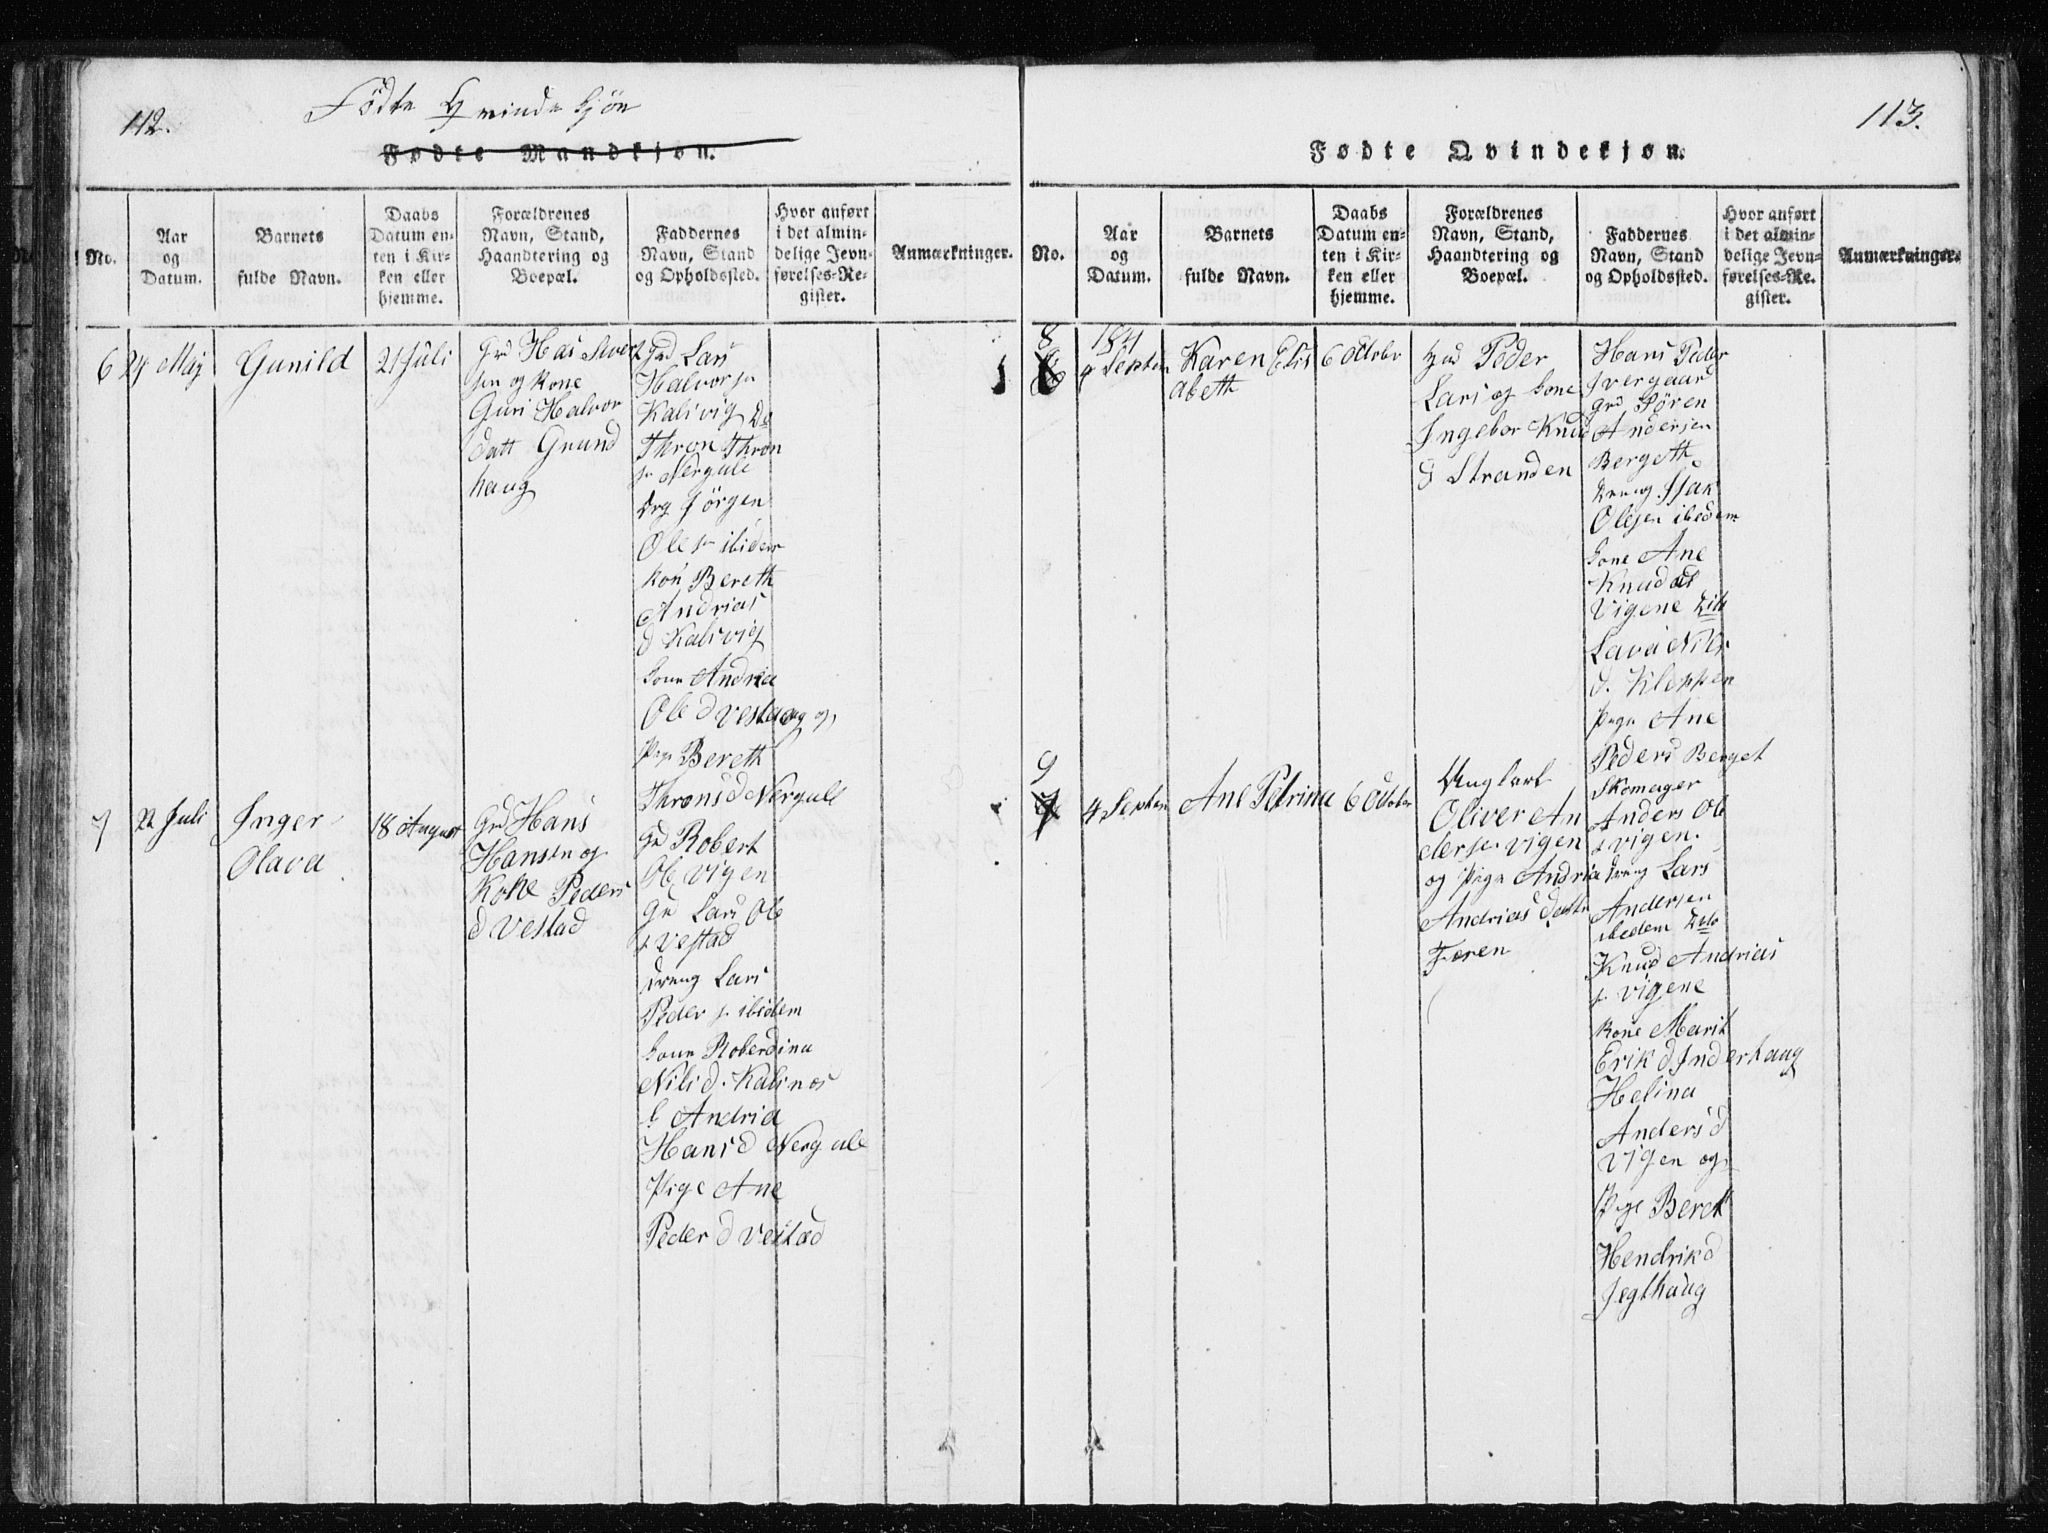 112.
Födte Qvindekjön
Fødte Mandkjøn.
No.
Aar
og
Datum.
Barnets
fulde Navn.
Daabs
Datum en-
ten i Kir-
ken eller
hjemme.
Forældrenes
Navn, Stand,
Haandtering og
Boepæl.
Faddernes
Navn, Stand
og Opholdssted.
Hvor anført
i det almin-
delige Jevn-
førelses-Re-
gister.
Anmærkninger.
6
24 Maj
Gunild
21 Juli
Grd Hans Sivert
sen og Kone
Guri Halvor
datt Grund
haug
Grd Lars
Halvorsn
Kalsvig Do
Thron Thron
sn Nergale
Drg Jörgen
Ole sn ibidem
Kon Bereth
Andrias
d Kalsvig
Kone Andria
Ole d Vesthaug og
Pige Bereth
Throns d Nergale
7
22 Juli
Inger
Olava
18 August
Grd Hans
Hansen og
Kone Peders
d Vestad
Gd Robert
Ols Vigen
Gd Lars Ol
s Vestad
Dreng Lars
Peder sn ibidem
Kone Roberdina
Nils d. Kalsnes
K Andria
Hans d Nergale
Pige Ane
Peder d Vestad
113.
Fødte Qvindekjøn.
No.
Aar
og
Datum.
Barnets
fulde Navn.
Daabs
Datum en-
ten i Kir-
ken eller
hjemme.
Forældrenes
Navn, Stand,
Haandtering og
Boepæl.
Faddernes
Navn, Stand
og Opholdssted.
Hvor anført
i det almin-
delige Jevn-
førelses-Re-
gister.
Anmærkninger.
8
1841
4 Septen
Karen Elis
abeth
6 Octobr
Peder
Lars og Kone
Ingebor Knud
d Stranden
Hans Peder
Ivergaard
Grd Sören
Andersen
Bergeth
Dreng Isak
Olesen ibedem
Kone Ane
Knudds
Vigene Dito
Lava Nils
d. Kleppen
Pige Ane
Peders Berget
9
4 Septen
Ane Petrina
6 Octobr
Ungkarl
Oliver An
dersn Vigen
og Pige Andria
Andrias datter
Færen
Skomager
Anders Ol
s Vigen.
Dreng Lars
Andersen
ibedem Dito
Knud Andrias
s. Vigene
Kone Marit
Erik d Inderhaug
Helina
Anders d
Vigen og
Pige Bereth
Hendrik d
Jeglhaug